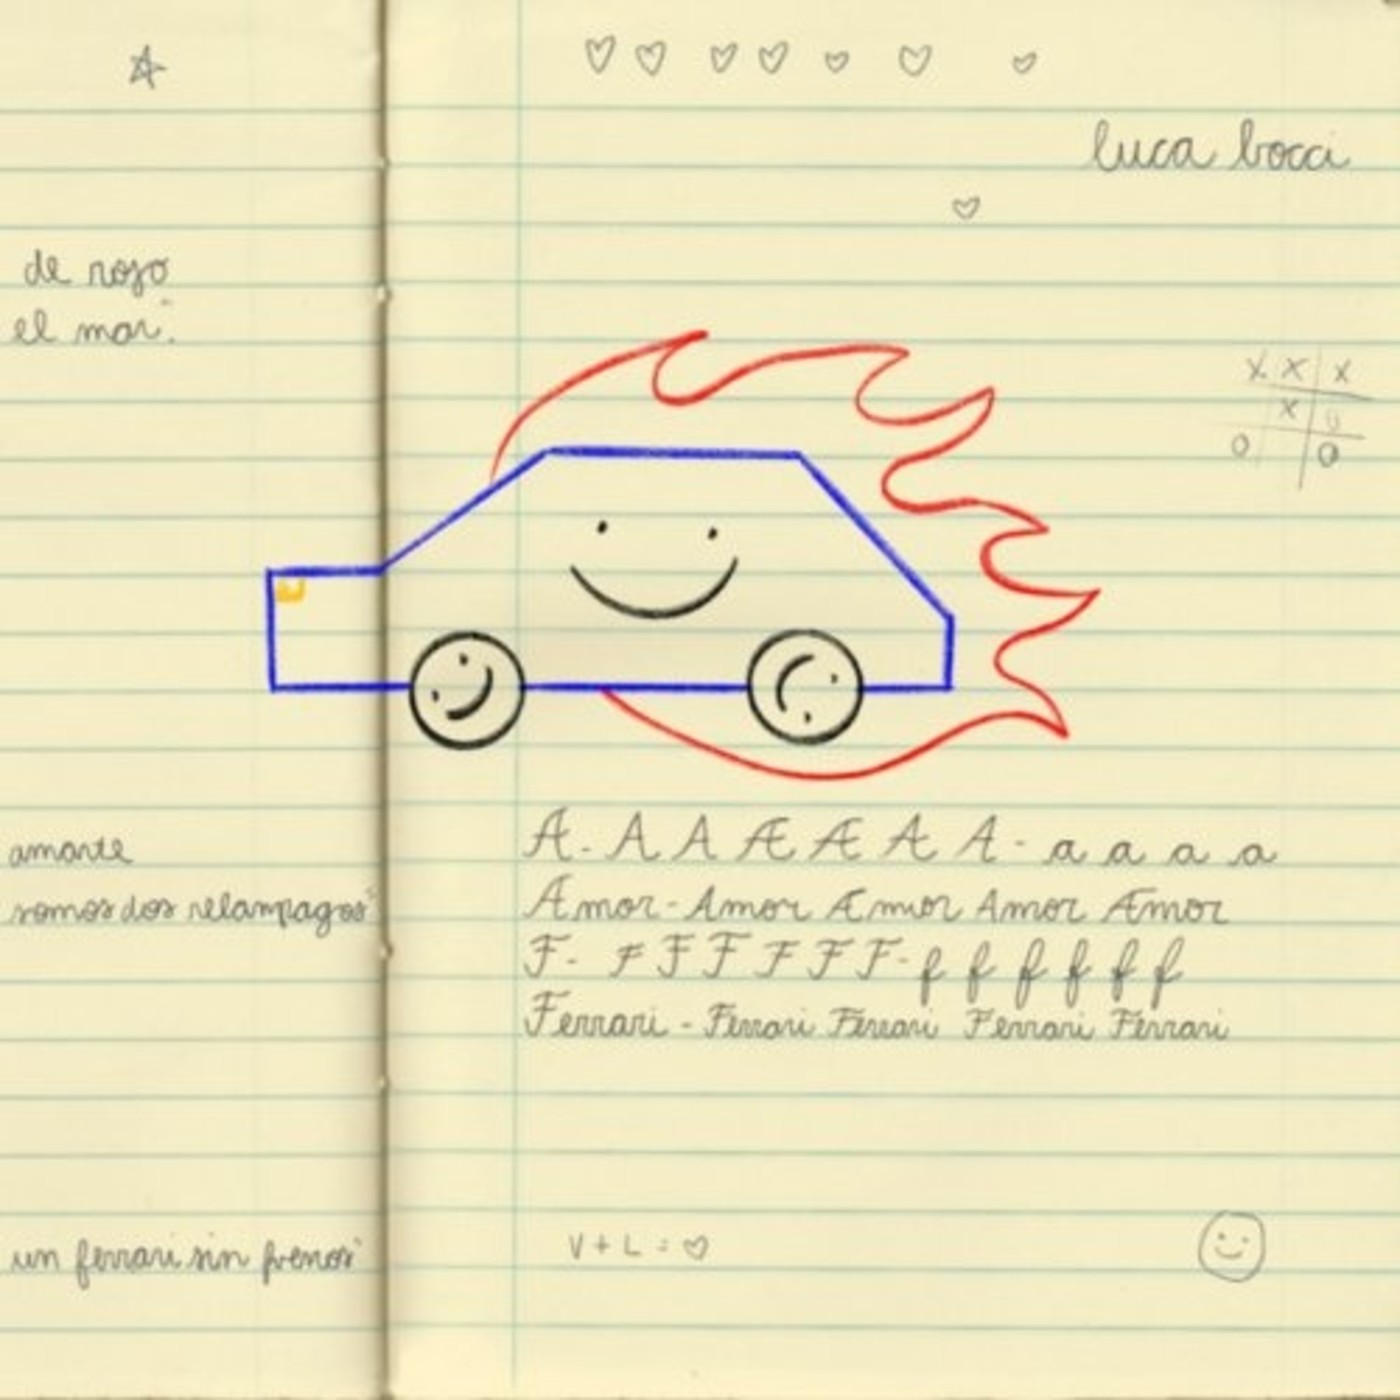 luca bocci
de rojo
el mar.
X X X
X O
O O
A. A A Æ Æ A A - a a a a
amante
somos dos relampagos
Amor - Amor Æmor Amor Æmor
F - F F F F F F - f f f f f f
Ferrari - Ferrari Ferrari Ferrari Ferrari
un ferrari sin frenos
V + L =